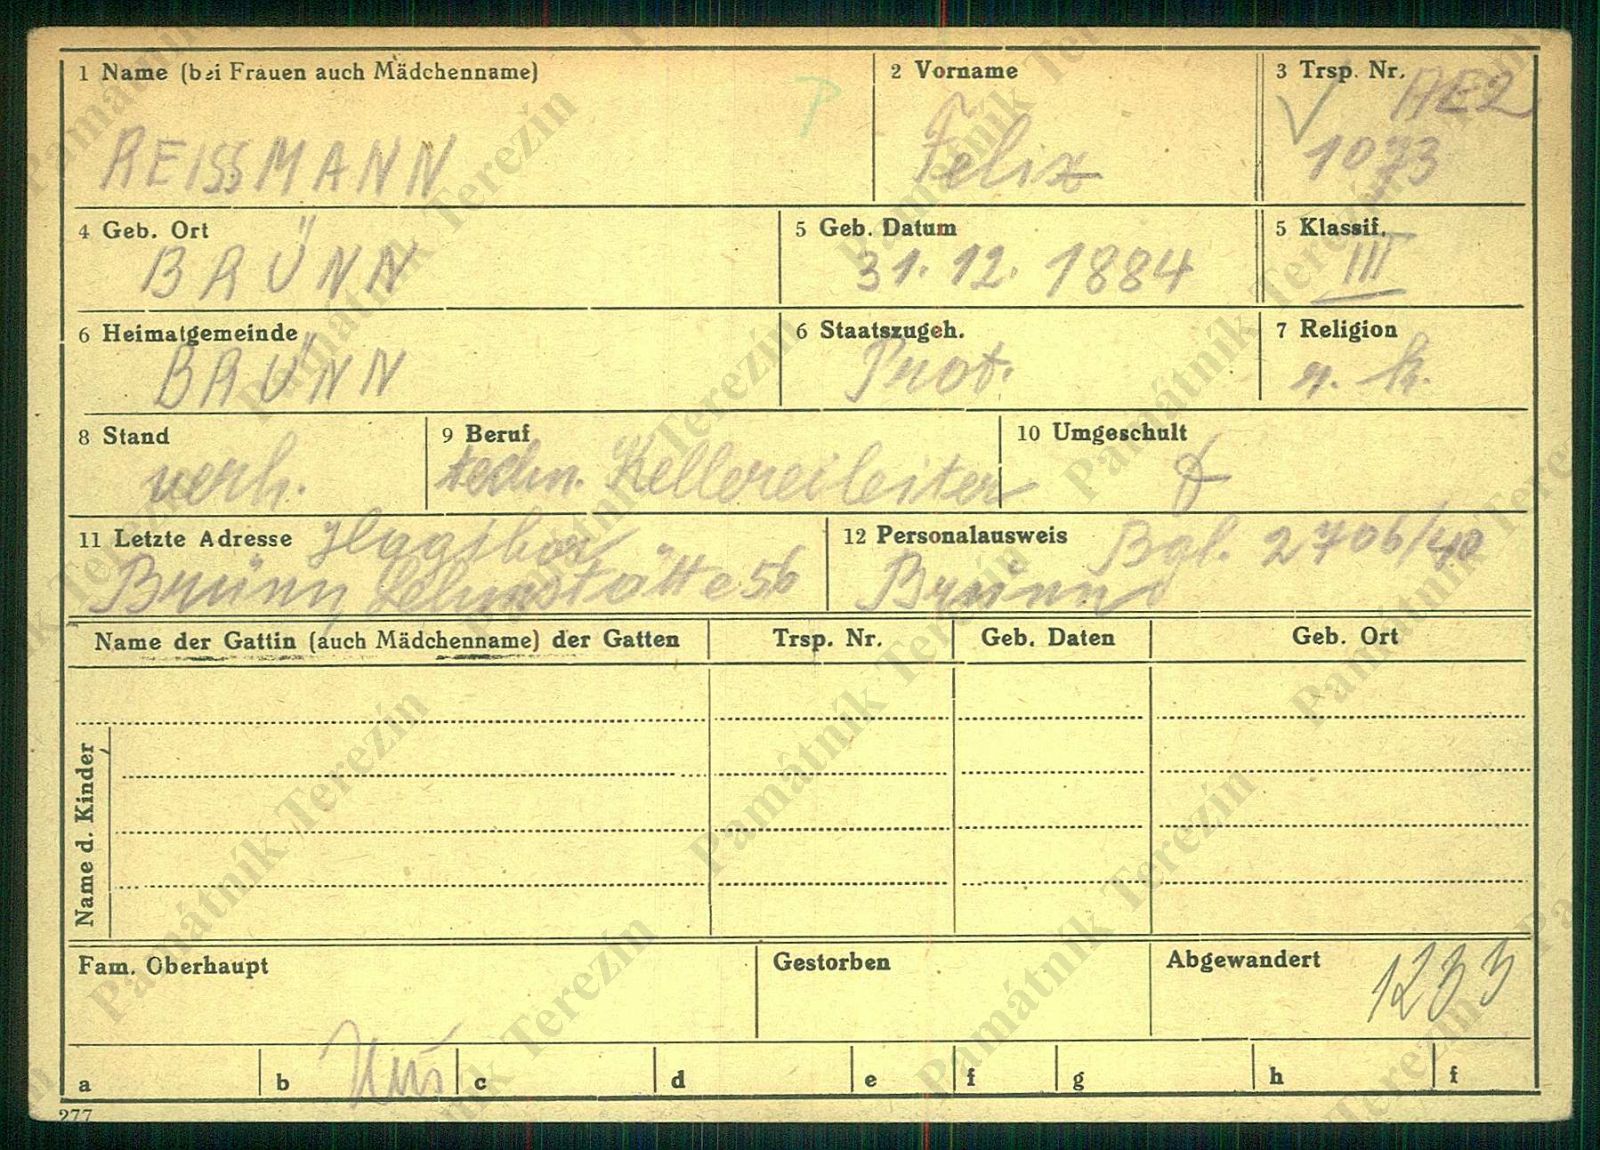 1 Name (bei Frauen auch Mädchenname)
REISSMANN
2 Vorname
Felix
3 Trsp. Nr.
AE2
1073
4 Geb. Ort
BRÜNN
5 Geb. Datum
31.12.1884
5 Klassif.
III
6 Heimatgemeinde
BRÜNN
6 Staatszugeh.
Prot.
7 Religion
r. k.
8 Stand
verh.
9 Beruf
techn. Kellereileiter
10 Umgeschult
11 Letzte Adresse
Brünn Lehmstätte 56
12 Personalausweis Bgl. 2706/40
Brünn
Name der Gattin (auch Mädchenname) der Gatten
Trsp. Nr.
Geb. Daten
Geb. Ort
Name d. Kinder
Fam. Oberhaupt
Gestorben
Abgewandert
1233
a
b
c
d
e
f
g
h
f
277
Památník Terezín